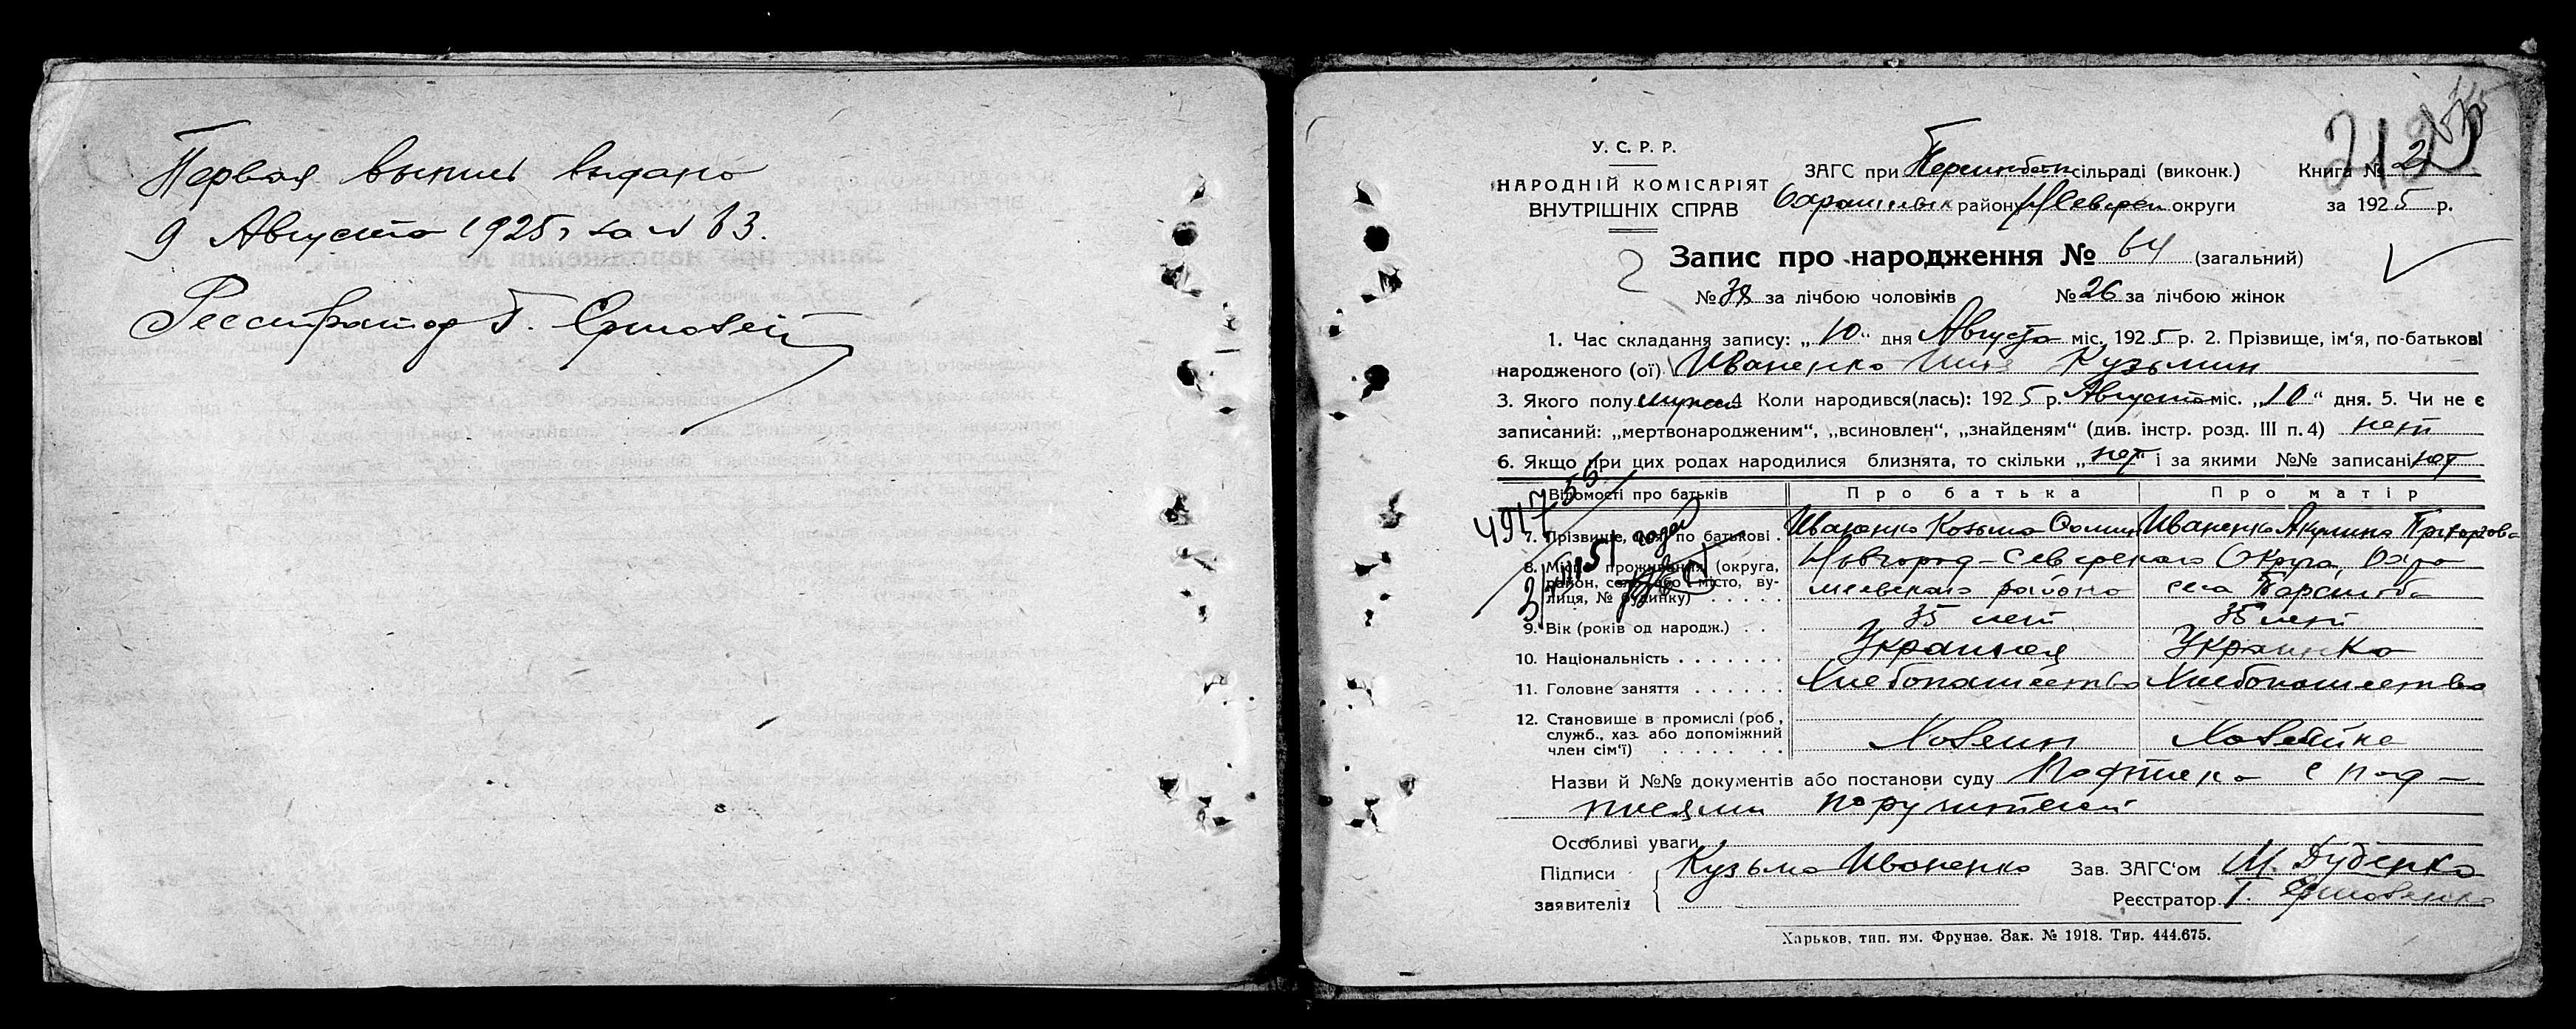 Первая выпись выдана
9 Августа 1925 г за № 63.
Регистратор Г.
У. С. Р. Р.
НАРОДНІЙ КОМІСАРІЯТ
ВНУТРІШНІХ СПРАВ
ЗАГС при сільраді (виконк.) Книга № 2
району округи за 1925 р.
Запис про народження № 64 (загальний)
№ 38 за лічбою чоловіків № 26 за лічбою жінок
1. Час складання запису: „10“ дня Августа міс. 1925 р. 2. Прізвище, ім'я, по-батькові
народженого (ої) Иваненко Кузьмин
3. Якого полу 4 Коли народився(лась): 1925 р. Августа міс. „10“ дня. 5. Чи не є
записаний: „мертвонародженим“, „всиновлен“, „знайденям“ (див. інстр. розд. III п. 4) нет
6. Якщо при цих родах народилися близнята, то скільки „нет“ і за якими №№ записані нет
Відомості про батьків Про батька Про матір
7. Прізвище, ім'я, по батькові . Иваненко Козьма Иваненко Акулина
8. Місце проживання (округа, Новгород-Северского Округа,
район, село або місто, ву- района села
лиця, № будинку) . . . . .
9. Вік (років од народж.) . . 35 лет 35 лет
10. Національність . . . . . . . Украинец Украинка
11. Головне заняття . . . . . . Хлебопашество Хлебопашество
12. Становище в промислі (роб,
служб., хаз. або допоміжний
член сім'ї) . . . . . . . Хозяин Хозяйка
Назви й №№ документів або постанови суду с под-
писями
Особливі уваги
Підписи Кузьма Иваненко Зав. ЗАГС'ом Дубенко
заявителів Реєстратор Г.
Харьков, тип. им. Фрунзе. Зак. № 1918. Тир. 444.675.